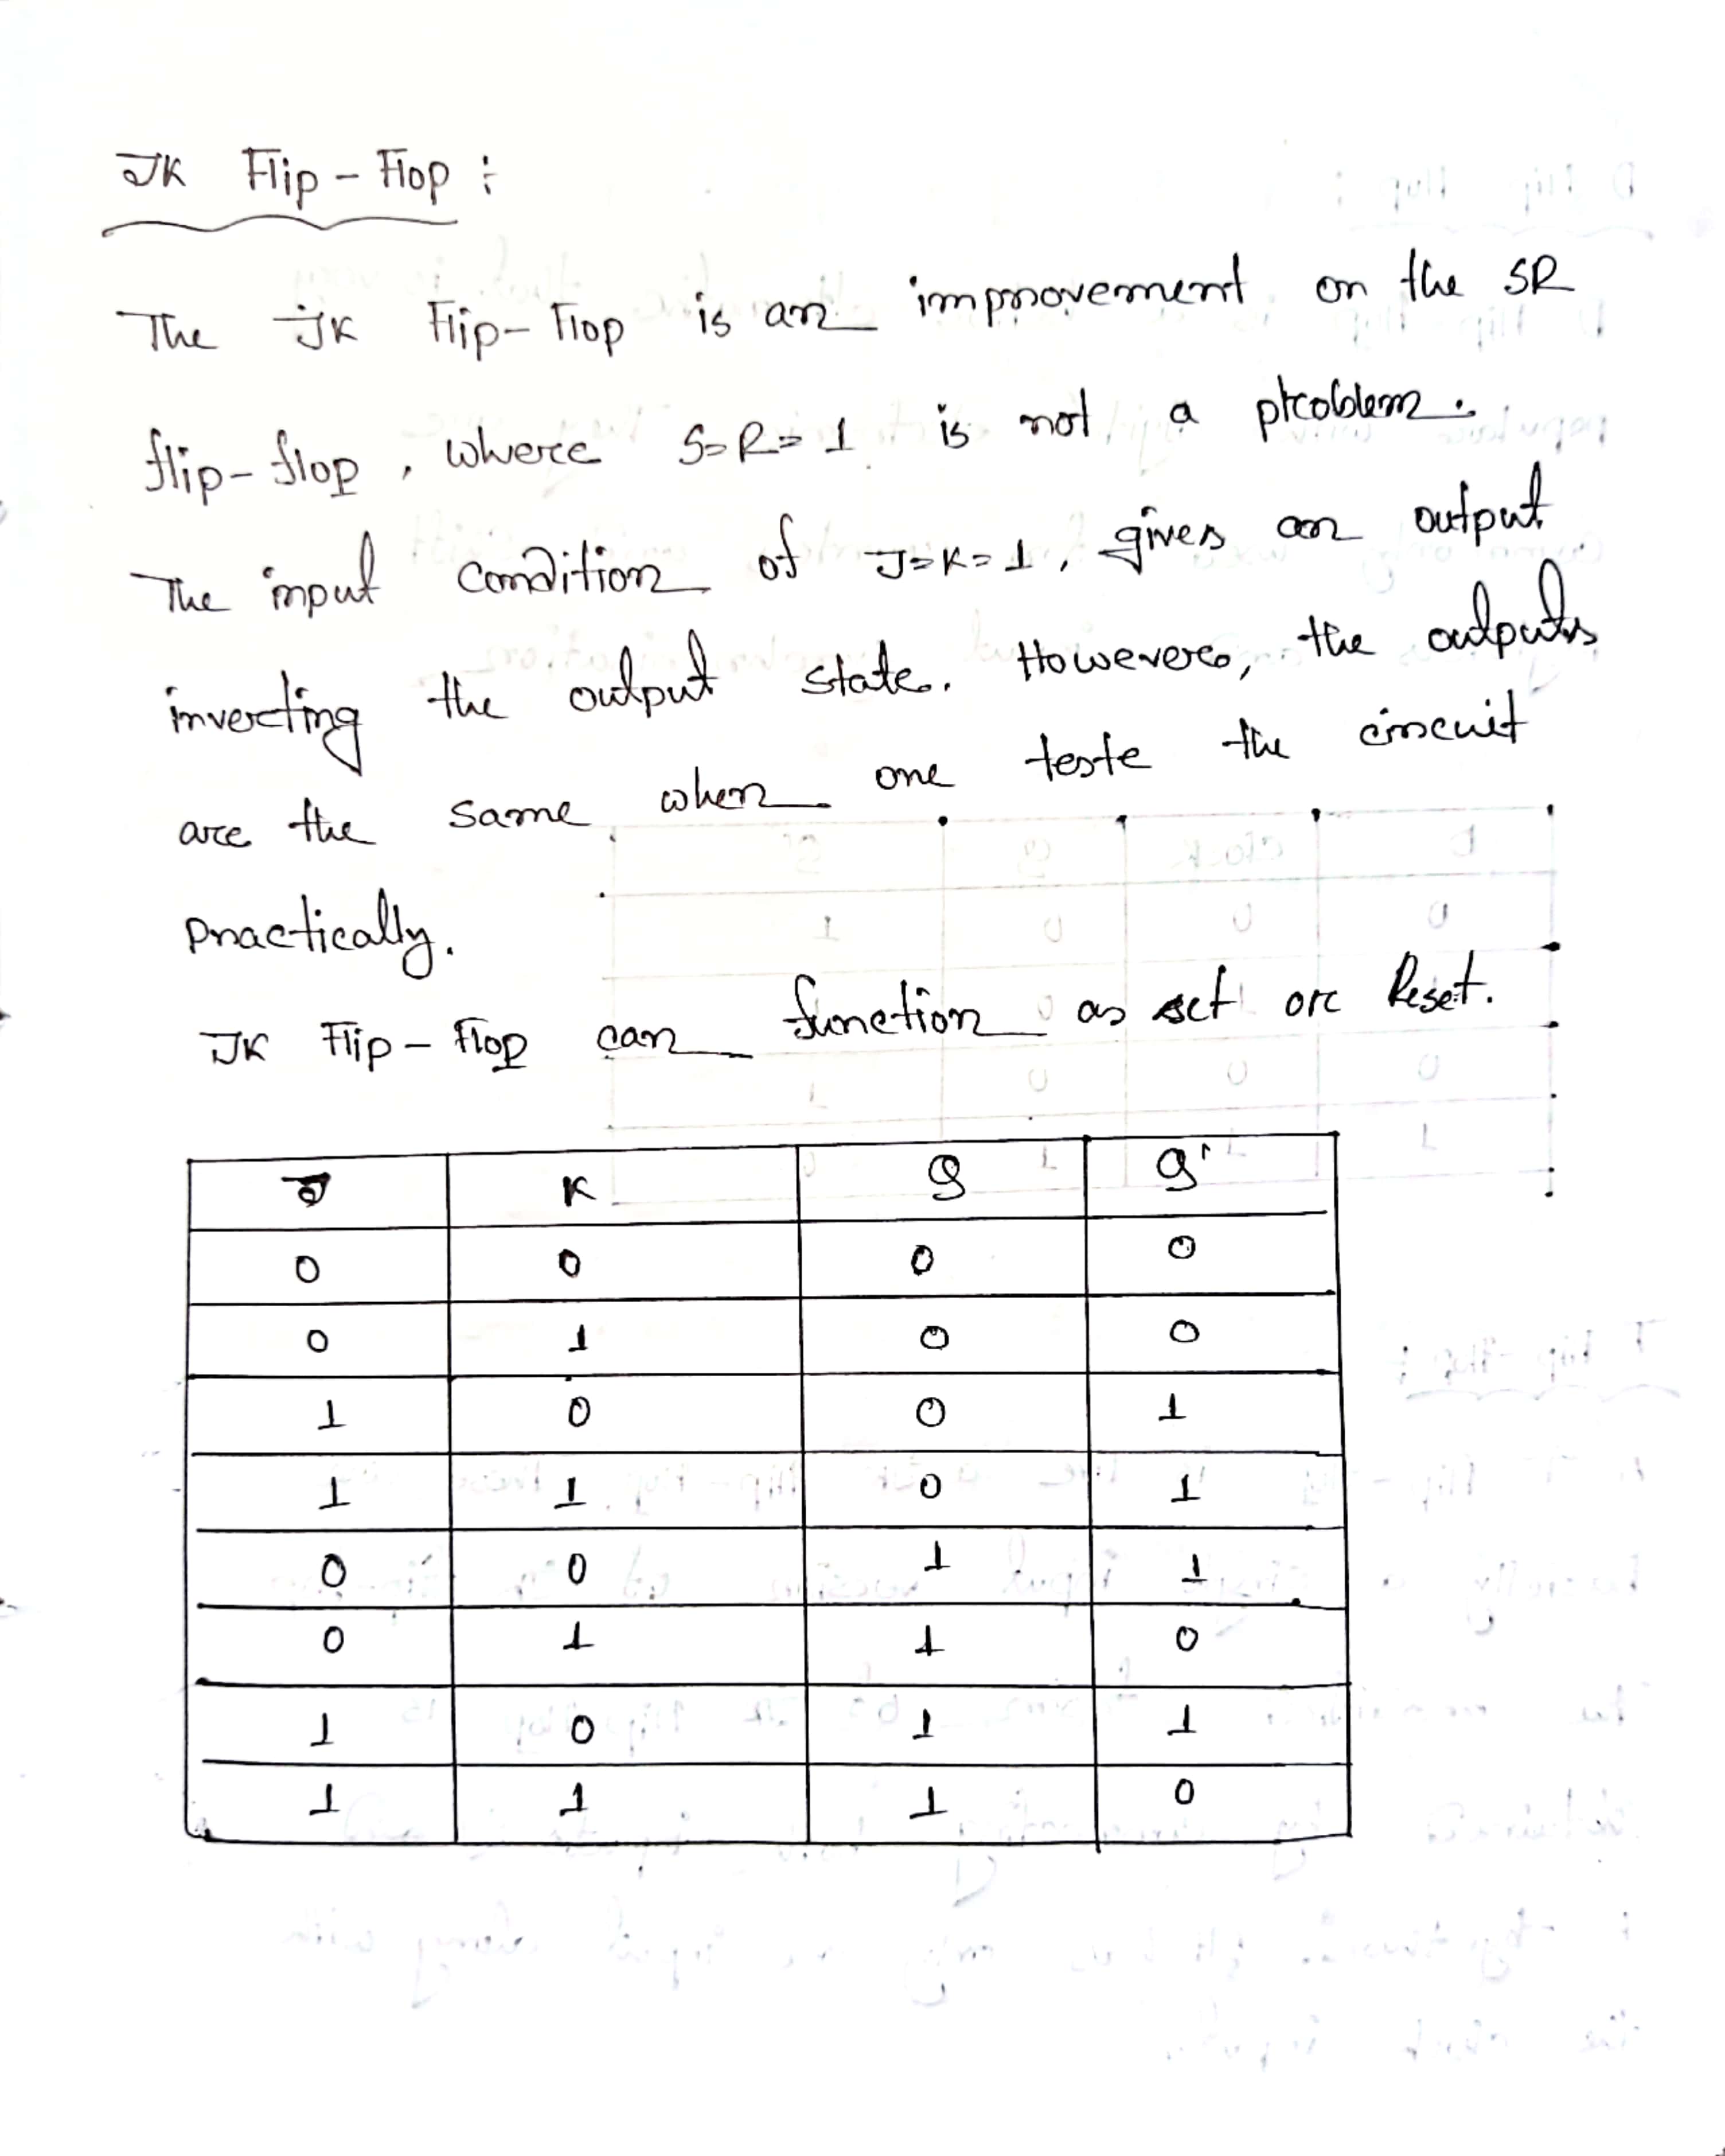 JK Flip-Flop :
The JK Flip-Flop is an improvement on the SR
flip-flop, where S=R=1 is not a problem.
The input condition of J=K=1, gives an output
inverting the output state. However, the outputs
are the same when one teste the circuit
practically.
JK Flip-Flop can function as set or Reset.
J K Q Q'
0 0 0 0
0 1 0 0
1 0 0 1
1 1 0 1
0 0 1 1
0 1 1 0
1 0 1 1
1 1 1 0